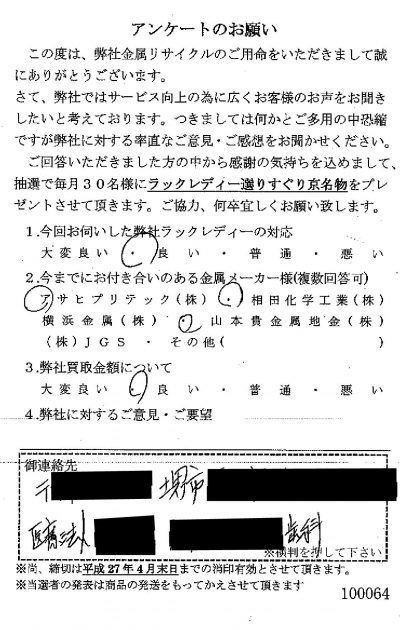 アンケートのお願い
この度は、弊社金属リサイクルのご用命をいただきまして誠
にありがとうございます。
さて、弊社ではサービス向上の為に広くお客様のお声をお聞き
したいと考えております。つきましては何かとご多用の中恐縮
ですが弊社に対する率直なご意見・ご感想をお聞かせください。
ご回答いただきました方の中から感謝の気持ちを込めまして、
抽選で毎月30名様にラックレディー選りすぐり京名物をプレ
ゼントさせて頂きます。ご協力、何卒宜しくお願い致します。
1.今回お伺いした弊社ラックレディーの対応
大変良い・良い・普通・悪い
2.今までにお付き合いのある金属メーカー様(複数回答可)
アサヒプリテック(株)・相田化学工業(株)
横浜金属(株)・山本貴金属地金(株)
(株)JGS・その他( )
3.弊社買取金額について
大変良い・良い・普通・悪い
4.弊社に対するご意見・ご要望
御連絡先
〒 堺市
医療法人 歯科
※横判を押して下さい
※尚、締切は平成27年4月末日までの消印有効とさせて頂きます。
※当選者の発表は商品の発送をもってかえさせて頂きます
100064